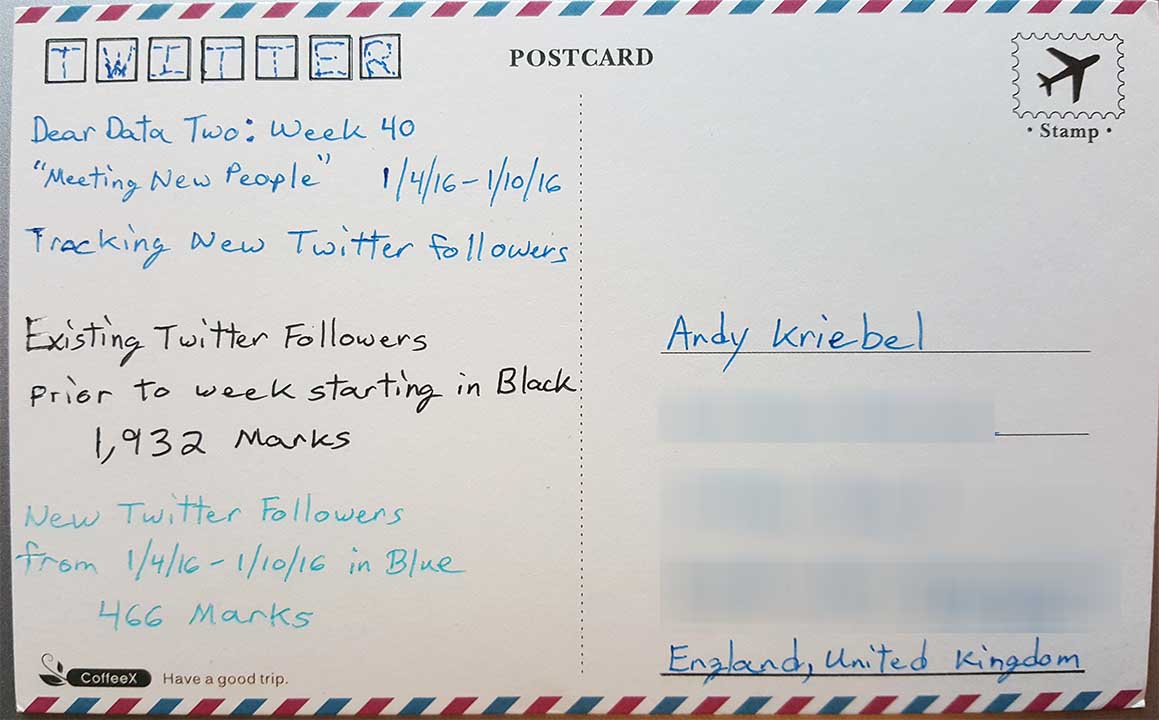 TWITTER
POSTCARD
• Stamp •
Dear Data Two: Week 40
"Meeting New People" 1/4/16 - 1/10/16
Tracking New Twitter followers
Existing Twitter Followers
prior to week starting in Black
1,932 Marks
New Twitter Followers
from 1/4/16 - 1/10/16 in Blue
466 Marks
CoffeeX Have a good trip.
Andy Kriebel
England, United Kingdom